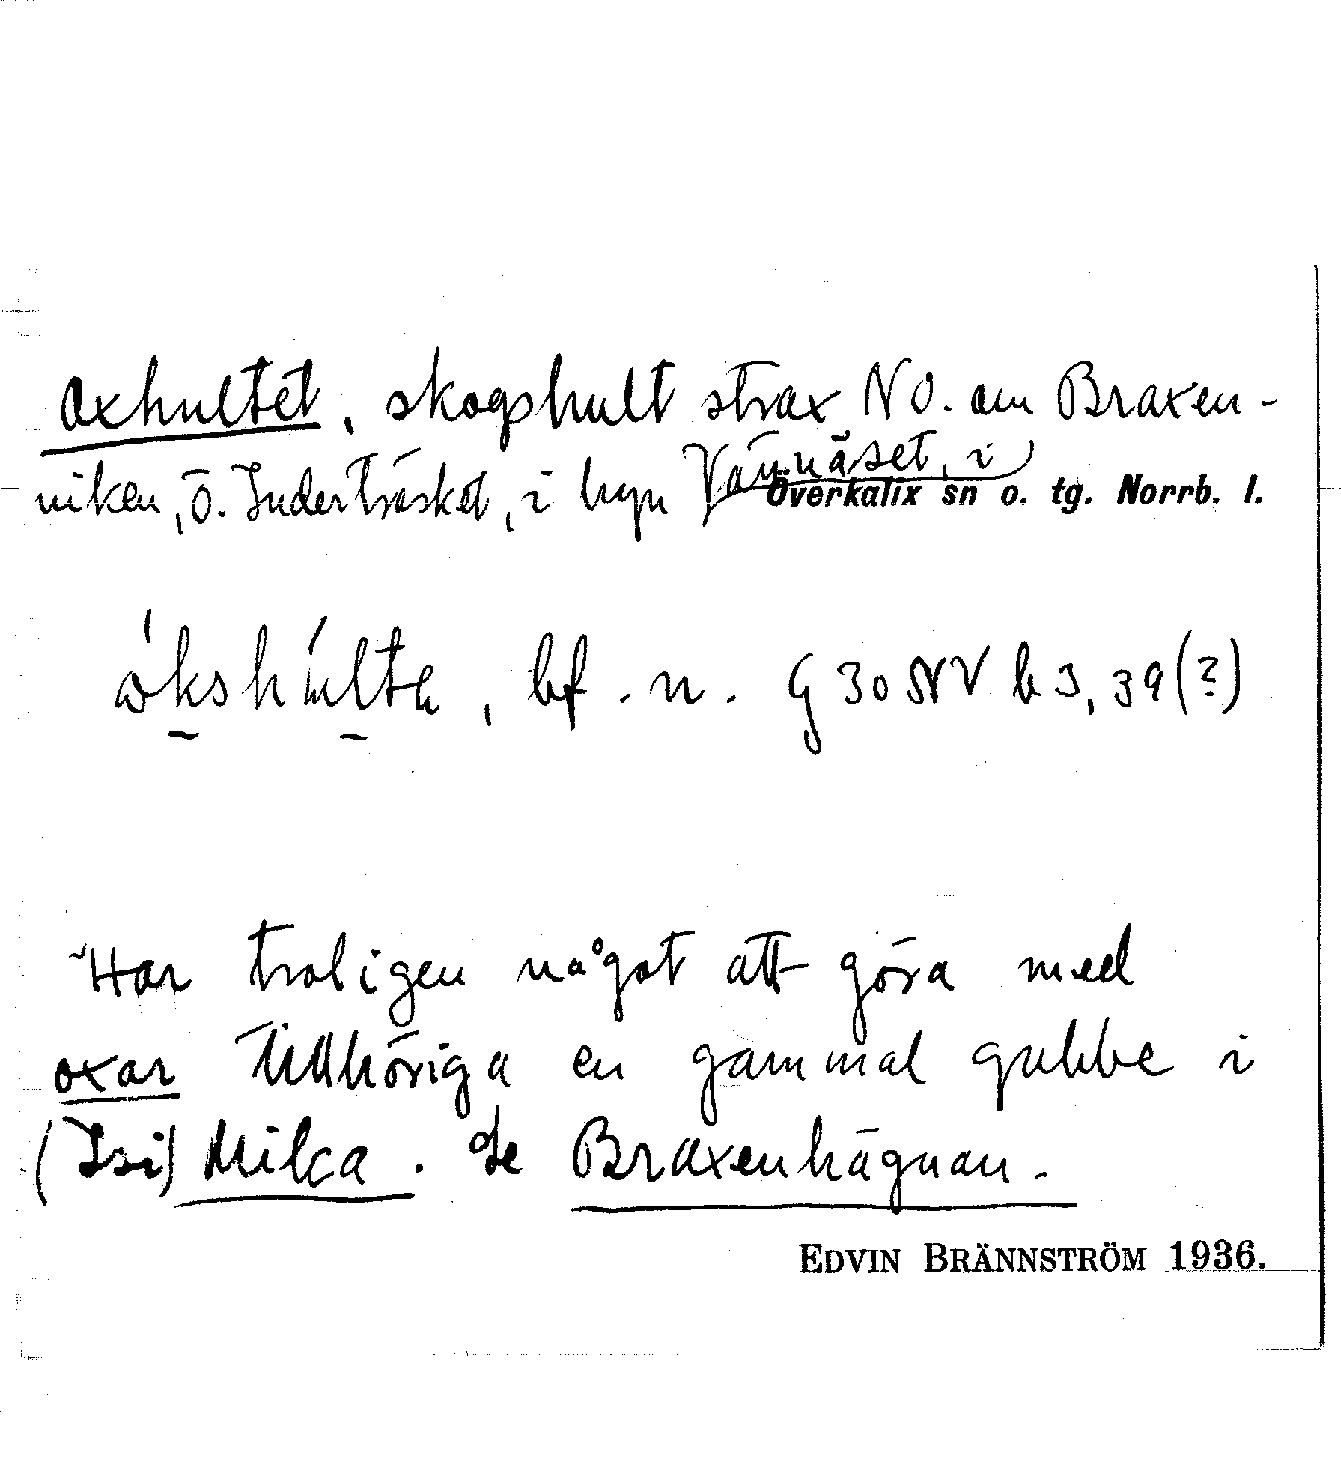 Oxhultet, skogshult strax NO. om Braxen-
viken, Ö. Inderträsket, i byn Vännäset, i
Överkalix sn o. tg. Norrb. l.
bf. n. G 30 NV b 3, 39 (?)
"Har troligen något att göra med
oxar tillhöriga en gammal gubbe i
(Isi) Milca. Se Braxenhägnan.
EDVIN BRÄNNSTRÖM 1936.